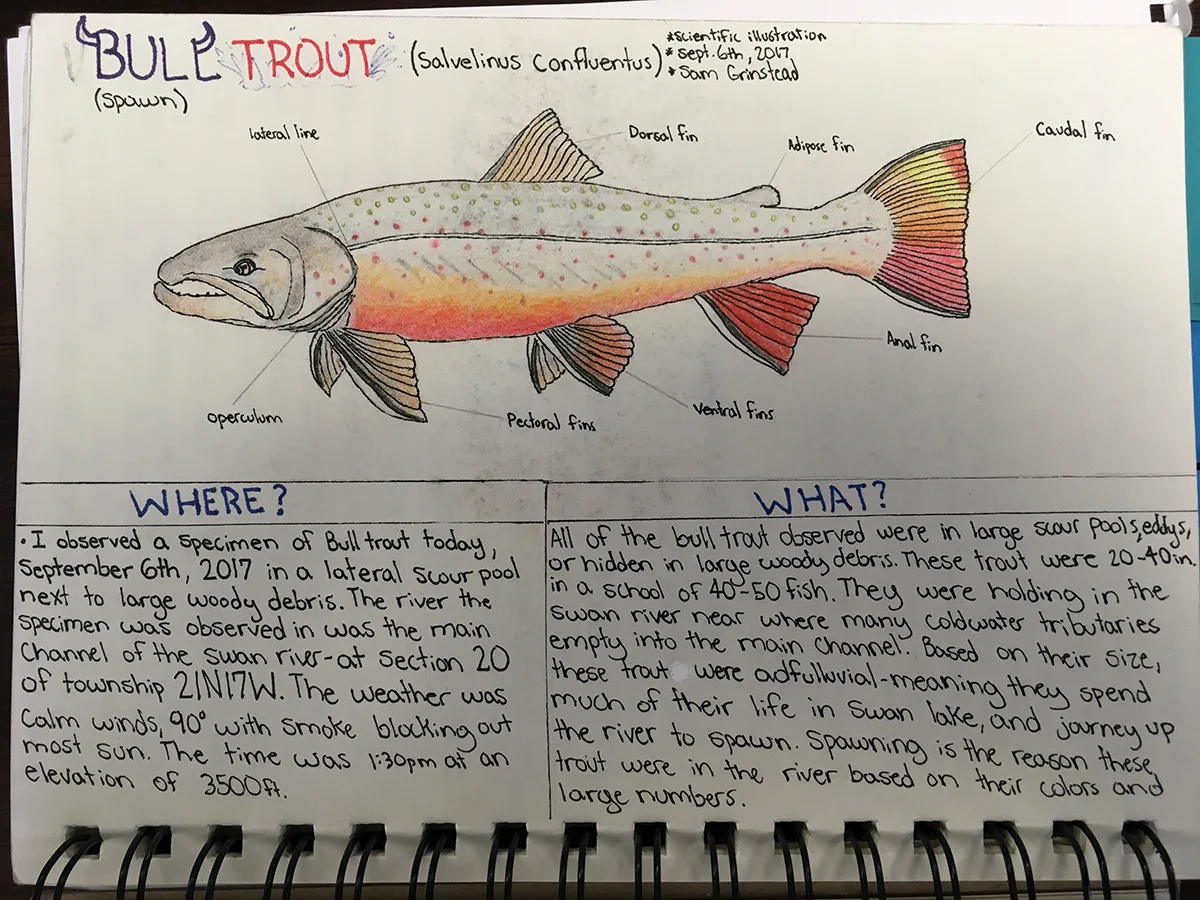 BULL TROUT (Salvelinus confluentus)
(spawn)
*scientific illustration
*sept. 6th, 2017
*Sam Grinstead
lateral line
Dorsal fin
Adipose fin
Caudal fin
operculum
Pectoral fins
Ventral fins
Anal fin
WHERE?
• I observed a specimen of Bull trout today,
September 6th, 2017 in a lateral scour pool
next to large woody debris. The river the
specimen was observed in was the main
channel of the swan river-at section 20
of township 21N17W. The weather was
calm winds, 90° with smoke blocking out
most sun. The time was 1:30pm at an
elevation of 3500ft.
WHAT?
All of the bull trout observed were in large scour pools, eddys,
or hidden in large woody debris. These trout were 20-40in.
in a school of 40-50 fish. They were holding in the
swan river near where many coldwater tributaries
empty into the main channel. Based on their size,
these trout were adfulluvial-meaning they spend
much of their life in Swan lake, and journey up
the river to spawn. Spawning is the reason these
trout were in the river based on their colors and
large numbers.